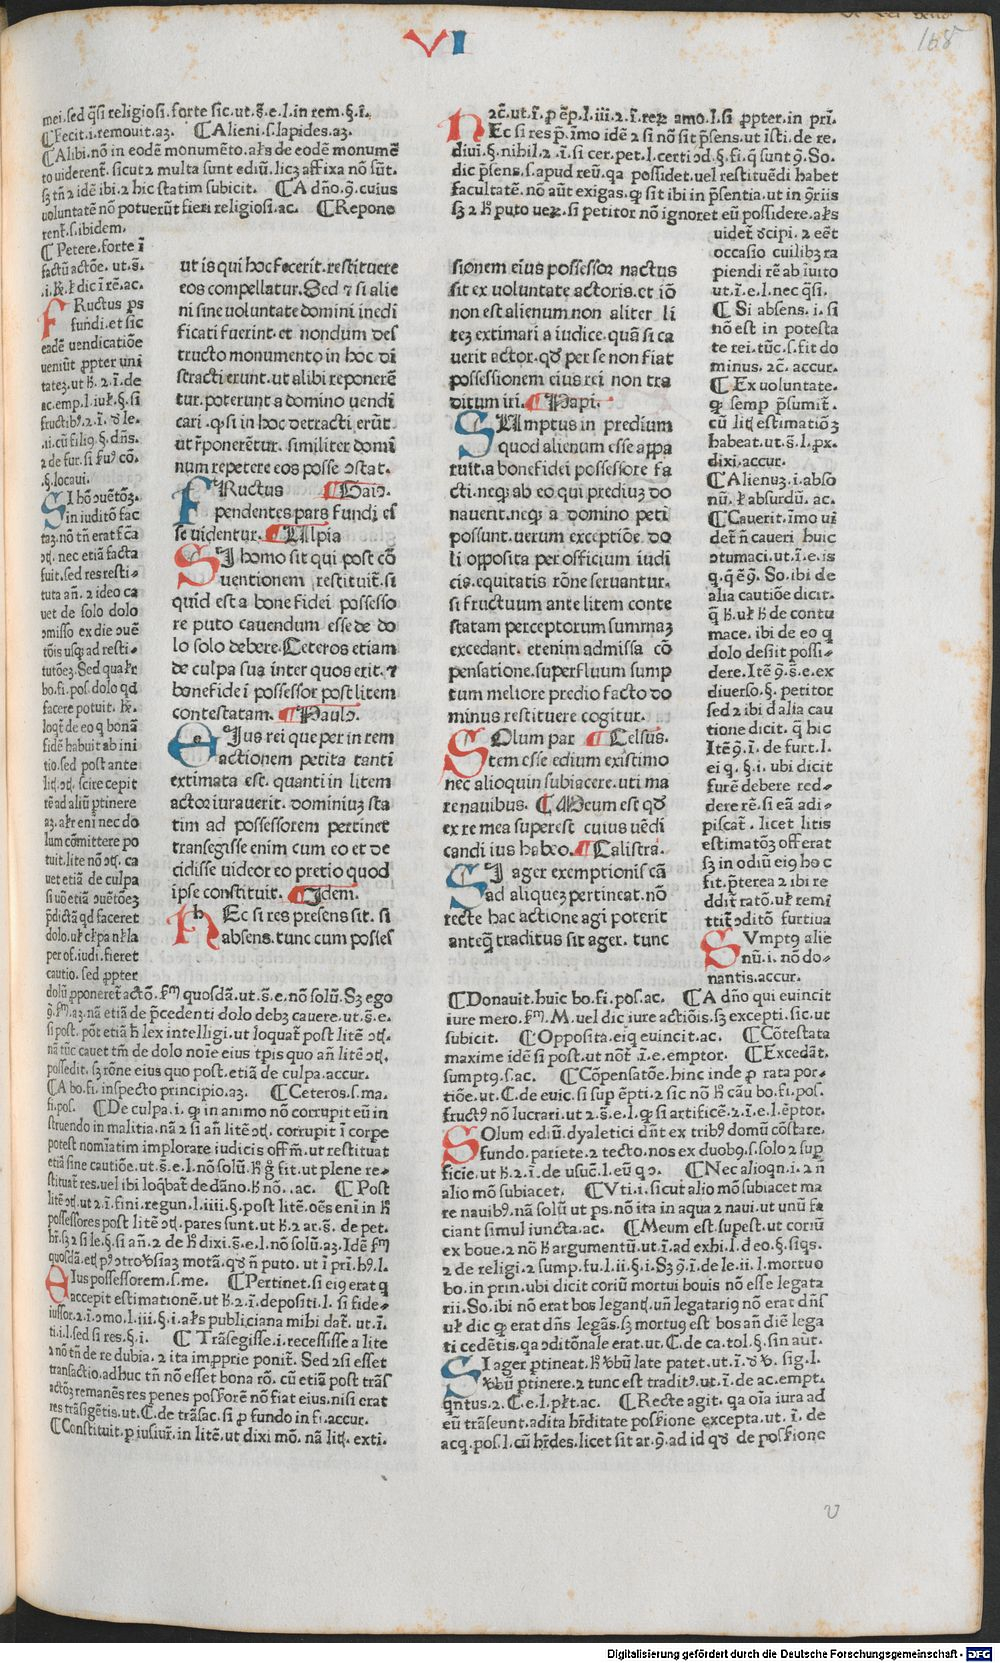 VI
168
mei.sed q̃si religiosi.forte sic.ut.s̃.e.l.in rem.§.ĩ.
¶Fecit.i.remouit.aꝫ. ¶Alieni.s.lapides.aꝫ.
¶Alibi.nõ in eodẽ monumẽto.ał's de eodẽ monumẽ
to uiderent̃.sicut ⁊ multa sunt ediũ.licꝫ affixa nõ sũt.
sꝫ tñ ⁊ idẽ ibi.⁊ hic statim subicit. ¶A dño.ꝯ.cuius
uoluntatẽ nõ potuerũt fieri religiosi.ac. ¶Repone
rent̃.s.ibidem.
¶Petere.forte ĩ
factũ actõe. ut.s̃.
FRuctus ps
fundi.et sic
eadẽ uendicatiõe
ueniũt ꝓpter uni
tateꝫ.ut ꝧ.⁊.ĩ.de
ac.emp.l.iuł.§.si
⁊ de fur.si
.§.locaui.
SI hõ ꝯuẽtõꝫ.
in iuditõ fac
taꝫ.nõ tñ erat fca
nec etiã facta
fuit.sed res resti-
tuta añ.⁊ ideo ca
uet de solo dolo
ꝯmisso ex die ꝯuẽ
tõis usqꝫ ad resti-
tutõeꝫ.Sed qua
bo.fi.pos.dolo qd
facere potuit.
loqt̃ de eo q bonã
fidẽ habuit ab ini
tio.sed post ante
scire cepit
rẽ ad aliũ ptinere
aꝫ.
lum cõmittere po
tuit.lite nõ ꝯt̃. ca
uet etiã de culpa
si uõ etiã ꝯuẽtõeꝫ
pdictã qd faceret
dolo.
per of.iudi.fieret
cautio.sed ꝓpter
dolũ ꝓponeret̃ actõ. quosdã.ut.s̃.e.nõ solũ.Sꝫ ego
nã etiã de p̃cedenti dolo debꝫ cauere.ut.s̃.e.
si post. põt etiã ꝧ lex intelligi.ut loquat̃ post litẽ ꝯt̃.
nã tũc cauet tm̃ de dolo noĩe eius tp̃is quo añ litẽ ꝯt̃.
possedit.sꝫ rõne eius quo post.etiã de culpa.accur.
¶A bo.fi.inspecto principio.aꝫ. ¶Ceteros.s.ma.
fi.pos. ¶De culpa.i.ꝙ in animo nõ corrupit eũ in
struendo in malitia.nã ⁊ si añ litẽ ꝯt̃. corrupit ĩ corpe
potest nomĩatim implorare iudicis offm̃.ut restituat
etiã sine cautiõe.ut.s̃.e.l.nõ solũ.ꝧ g̃ fit.ut plene re-
stituat̃ res.uel ibi loq̃bat̃ de dãno.ꝧ nõ..ac. ¶Post
litẽ ꝯt̃.ut ⁊.ĩ.fini.regun.l.iiii.§.post litẽ.oẽs eni ĩ ꝧ
possessores post litẽ ꝯt̃.pares sunt.ut ꝧ.⁊ ar.s̃. de pet.
sꝫ ⁊ si le.§.si añ.⁊ de ꝧ dixi.s̃.e.l.nõ solũ.aꝫ.Idẽ
quosdã. motã.qꝺ ñ puto. ut ĩ pri.
EIus possessorem.s.me. ¶Pertinet.si eiꝯ erat q
accepit estimationẽ.ut ꝧ.⁊.ĩ.depositi.l. si fide-
iussor.⁊.ĩ.ꝯmo.l.iii.§.i.ał's publiciana mihi dat̃. ut.ĩ.
ti.i.l.sed si res.§.i. ¶Trãsegisse.i.recessisse a lite
⁊ nõ tñ de re dubia.⁊ ita impprie ponit̃. Sed ⁊ si esset
transactio.adhuc tñ nõ esset bona rõ. cũ etiã post trãs
actõꝫ remanẽs res penes possorẽ nõ fiat eius.nisi erat
res trãsigẽtis.ut.C.de trãsac.si p fundo in fi.accur.
¶Constituit.p iusiur̃.in litẽ.ut dixi mõ. nã lit̃. exti.
ut is qui hoc fecerit.restituere
eos compellatur.Sed ⁊ si alie
ni sine voluntate domini inedi
ficati fuerint.et nondum des
tructo monumento in hoc di
stracti erunt.ut alibi reponerẽ
tur.poterunt a domino uendi
cari.ꝙ si in hoc detracti erũt.
ut r̃ponerẽtur.similiter domi
num repetere eos posse ꝯstat.
FRuctus ¶Gaiꝰ.
pendentes pars fundi es
se uidentur. ¶Ulpia
SI homo sit qui post cõ
uentionem restituit̃.si
quid est a bone fidei possesso
re puto cauendum esse de do
lo solo debere.Ceteros etiam
de culpa sua inter quos erit.⁊
bonefidei possessor post litem
contestatam. ¶Paulꝰ.
EIus rei que per in rem
actionem petita tanti
extimata est. quanti in litem
actor iurauerit. dominiuꝫ sta
tim ad possessorem pertinet
transegisse enim cum eo et de
cidisse uideor eo pretio quod
ipse constituit. ¶Idem.
HEc si res presens sit. si
absens.tunc cum posses
⁊c̃.ut.ĩ.p ẽp.l.iii.⁊.ĩ.reꝝ amo.l.si ꝓpter.in pri.
HEc si res p̃.ĩmo idẽ ⁊ si nõ sit p̃sens.ut ĩsti.de re.
diui.§.nihil.⁊ .ĩ.si cer.pet.l.certi ꝯd.§.fi.q̃ sunt ꝯ.So.
dic p̃sens.s.apud reũ.qa possidet.uel restituẽdi habet
facultatẽ.nõ aũt exigas.ꝙ sit ibi in p̃sentia.ut in ꝯ̃riis
sꝫ ⁊ ꝧ puto ueꝝ.si petitor nõ ignoret eũ possidere.ał's
uidet̃ decipi.⁊ eẽt
occasio cuilibꝫ ra
piendi rẽ ab ĩuito
ut.ĩ.e.l.nec q̃si.
¶Si absens.i.si
nõ est in potesta
te rei.tũc.s.fit do
minus.⁊c̃.accur.
¶Ex uoluntate.
ꝙ semp p̃sumit̃.
cũ lit̃ estimatiõꝫ
habeat.ut.s̃.l.px.
dixi.accur.
¶Alienuꝫ.i.abso
nũ.ł absurdũ. ac.
¶Cauerit.ĩmo ui
det̃ ñ caueri huic
ꝯtumaci.ut.ĩ.e.is
q.q̃ ẽ ꝯ. So.ibi de
alia cautiõe dicit̃.
q̃ ꝧ.uł ꝧ de contu
mace. ibi de eo q
dolo desiit possi-
dere.Itẽ ꝯ.s̃.e.ex
diuerso.§. petitor
sed ⁊ ibi ꝺ alia cau
tione dicit. q̃ hic
Itẽ ꝯ.ĩ.de furt.l.
ei q.§.i. ubi dicit
furẽ debere red-
dere rẽ.si eã adi-
piscat̃ .licet litis
estimatõꝫ offerat
sꝫ in odiũ eiꝯ hoc
fit.p̃terea ⁊ ibi re
ddit ratõ.uł remi
ttit̃ ꝯditõ furtiua
SVmptꝯ alie
nũ.i. nõ do-
nantis.accur.
sionem eius possessor nactus
sit ex uoluntate actoris.et iõ
non est alienum.non aliter li
teꝫ extimari a iudice.quã si ca
uerit actor.qꝺ per se non fiat
possessionem eius rei non tra
ditum iri. ¶Papi.
SUmptus in predium
quod alienum esse appa
ruit.a bonefidei possessore fa
cti.neqꝫ ab eo qui prediuꝫ do
nauerit.neqꝫ a domino peti
possunt.uerum exceptiõe do
li opposita per officium iudi
cis.equitatis rõne seruantur.
si fructuum ante litem conte
statam perceptorum summaꝫ
excedant. etenim admissa cõ
pensatione.superfluum sump
tum meliore predio facto do
minus restituere cogitur.
SOlum par ¶Celsus.
tem esse edium existimo
nec alioquin subiacere.uti ma
re nauibus. ¶Meum est qꝺ
ex re mea superest cuius uẽdi
candi ius habeo. ¶Calistra.
SI ager ex emptionis cã
ad aliqueꝫ pertineat.nõ
recte hac actione agi poterit
anteq̃ traditus sit ager. tunc
¶Donauit.huic bo.fi.pos.ac. ¶A dño qui euincit
iure mero. M.uel dic iure actiõis.sꝫ excepti.sic.ut
subicit. ¶Opposita.eiq euincit.ac. ¶Cõtestata
maxime idẽ si post.ut not̃.ĩ.e.emptor. ¶Excedãt.
sumptꝯ.s.ac. ¶Cõpensatõe.hinc inde p rata por-
tiõe.ut.C.de euic.si sup ẽpti.⁊ sic nõ ꝧ cãu bo.fi.pos.
fructꝯ nõ lucrari.ut ⁊.s̃.e.l.ꝙ si artificẽ.⁊.ĩ.e.l.ẽptor.
SOlum ediũ.dyaletici dñt ex tribꝯ domũ cõstare.
fundo.pariete.⁊ tecto.nos ex duobꝯ.s.solo ⁊ sup
ficie.ut ꝧ.⁊.ĩ.de usuc̃.l.eũ q ꝯ. ¶Nec alioqn.i.⁊ ñ
alio mõ subiacet. ¶Vti.i.sicut alio mõ subiacet ma
re nauibꝯ.nã solũ ut ps.nõ ita in aqua ⁊ naui.ut unũ fa
ciant simul iuncta.ac. ¶Meum est.supest.ut coriũ
ex boue.⁊ nõ ꝧ argumentũ.ut.ĩ.ad exhi.l.de o.§.siqs.
⁊ de religi.⁊ sump.fu.l.ii.§.i.Sꝫ ꝯ.ĩ.de le.ii.l.mortuo
bo.in prin.ubi dicit coriũ mortui bouis nõ esse legata
rii.So.ibi nõ erat bos legant̃.uñ legatariꝯ nõ erat dñs
uł dic ꝙ erat dñs legãs.sꝫ mortuꝯ est bos añ diẽ lega
ti cedẽtis.qa ꝯditõnale erat.ut.C.de ca.tol.§.sin aũt.
SI ager ptineat.ꝧ vbũ late patet.ut.ĩ.de v. sig.l.
vbũ ptinere.⁊ tunc est traditꝯ.ut.ĩ.de ac.empt.
qntus.⁊.C.e.l.płt.ac. ¶Recte agit. qa oĩa iura ad
eũ trãseunt.adita hr̃ditate possione excepta.ut. ĩ. de
acq.pos.l.cũ hr̃des.licet sit ar.ꝯ.ad id qꝺ de possione
v
Digitalisierung gefördert durch die Deutsche Forschungsgemeinschaft - DFG